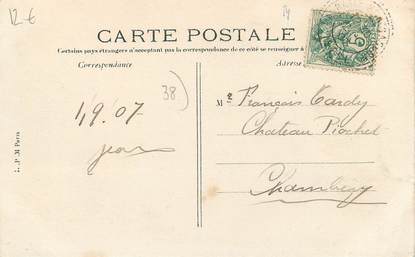 12-€
14
CARTE POSTALE
Certains pays étrangers n'acceptant pas la correspondance de ce côté se renseigner à
Correspondance
Adresse
5
38
1, 9. 07
Jean
Mr François Tardy
Chateau Piochet
Chambéry
L. P. M Paris